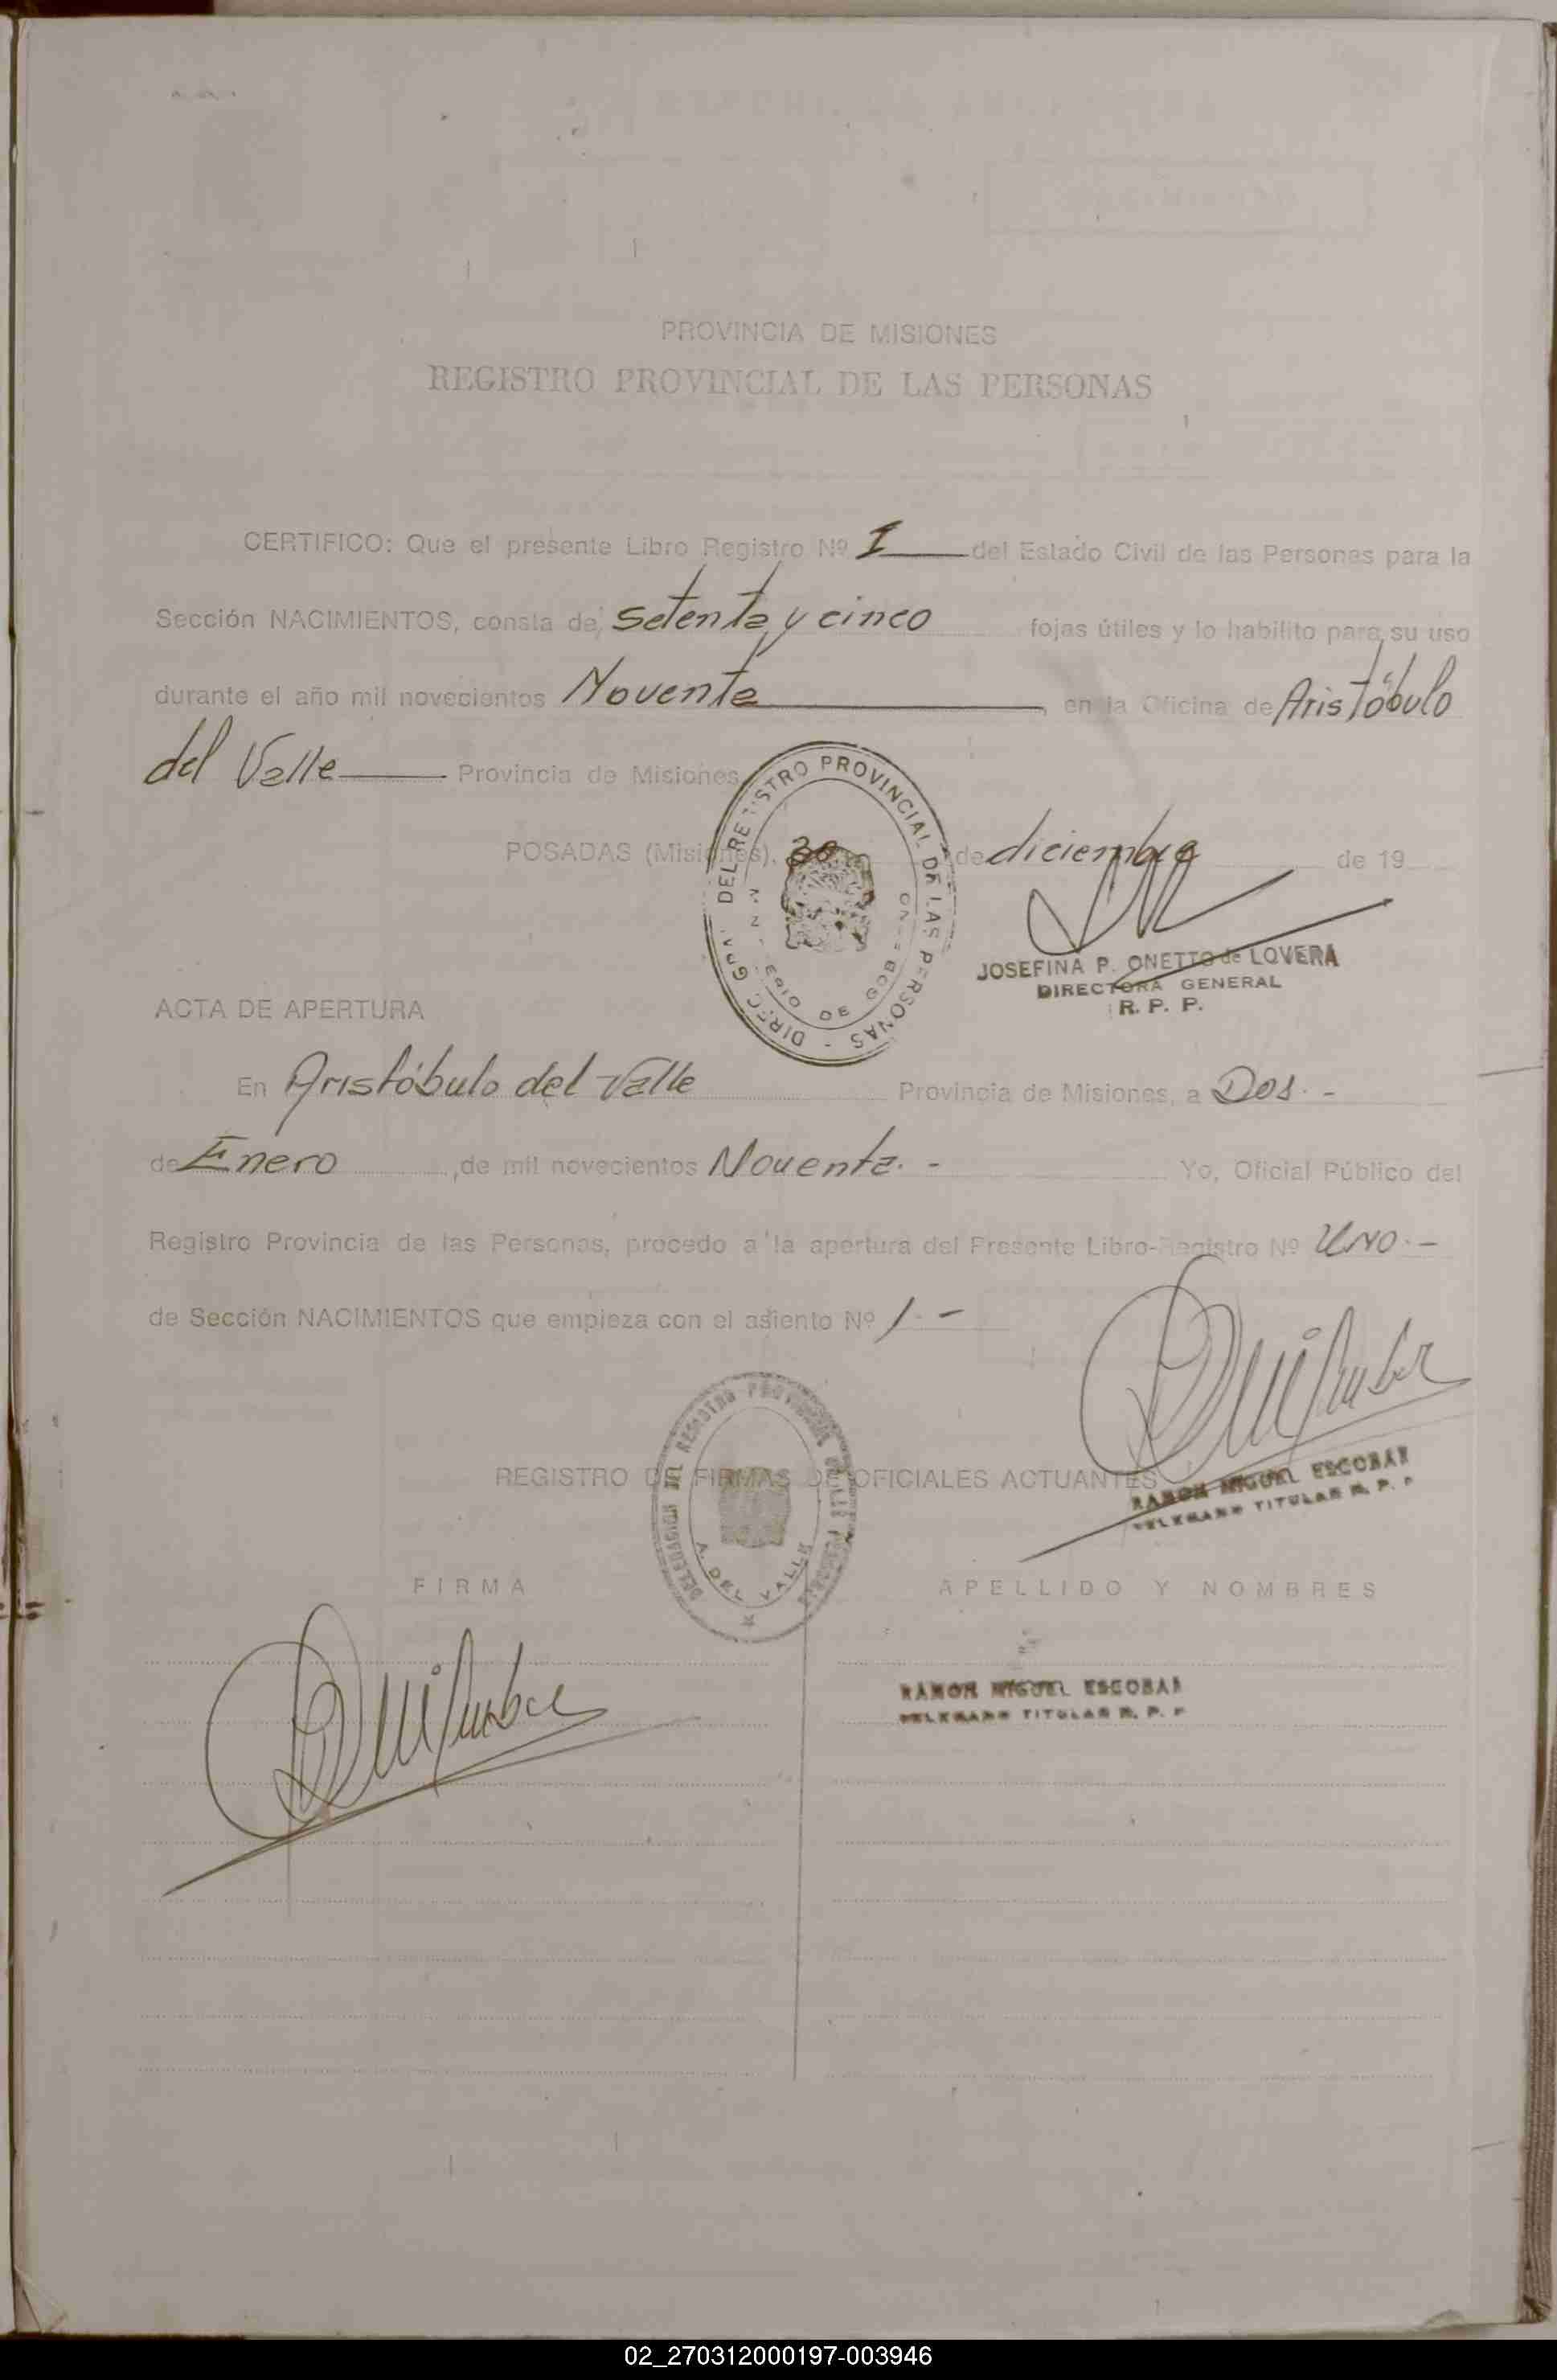 PROVINCIA DE MISIONES
REGISTRO PROVINCIAL DE LAS PERSONAS
CERTIFICO: Que el presente Libro Registro Nº I del Estado Civil de las Personas para la
Sección NACIMIENTOS, consta de setenta y cinco fojas útiles y lo habilito para su uso
durante el año mil novecientos Noventa, en la Oficina de Aristóbulo
del Valle Provincia de Misiones
POSADAS (Misiones), 30 de diciembre de 19
DIREC. GRAL. DEL REGISTRO PROVINCIAL DE LAS PERSONAS -
DE GOB
JOSEFINA P. ONETTO de LOVERA
DIRECTORA GENERAL
R. P. P.
ACTA DE APERTURA
En Aristóbulo del Valle Provincia de Misiones, a Dos. -
de Enero, de mil novecientos Noventa. - Yo, Oficial Público del
Registro Provincia de las Personas, procedo a la apertura del Presente Libro-Registro Nº UNO. -
de Sección NACIMIENTOS que empieza con el asiento Nº 1 -
RAMON MIGUEL ESCOBAR
DELEGADO TITULAR R. P. P
REGISTRO DE FIRMAS DE OFICIALES ACTUANTES
DELEGACION DEL REGISTRO PROVINCIAL DE LAS PERSONAS
A. DEL VALLE
FIRMA APELLIDO Y NOMBRES
RAMON MIGUEL ESCOBAR
DELEGADO TITULAR R. P. P
02_270312000197-003946